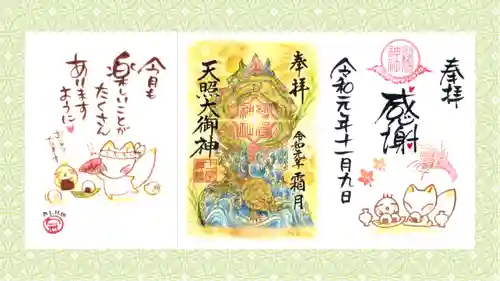 奉拝
感謝
令和元年十一月九日
奉拝
令和元年
霜月
天照大御神
今月も
楽しいことが
たくさん
あります
ように